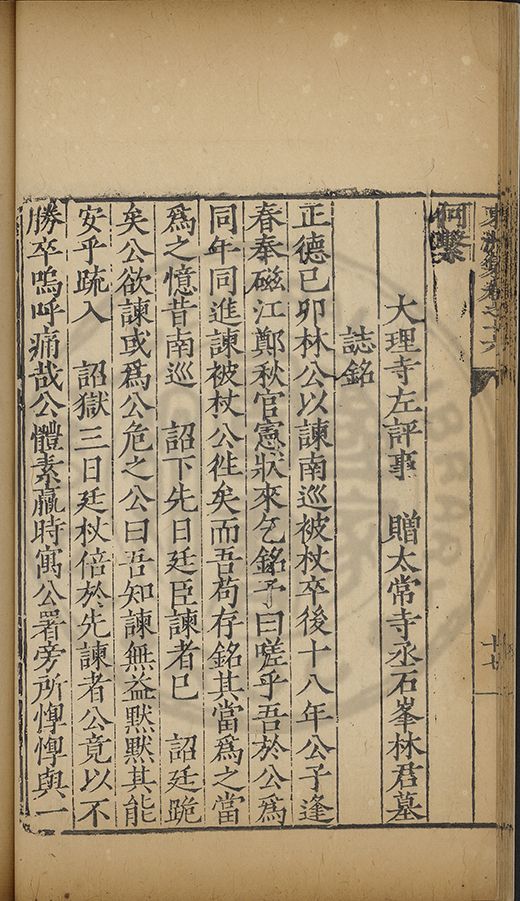 東洲集卷之十六
十七
何繫
大理寺左評事　贈太常寺丞石峯林君墓
誌銘
正德己卯林公以諫南巡被杖卒後十八年公子逢
春奉磁江鄭秋官憲狀來乞銘予曰嗟乎吾於公爲
同年同進諫被杖公徃矣而吾苟存銘其當爲之當
爲之憶昔南巡　詔下先日廷臣諫者巳　詔廷跪
矣公欲諫或爲公危之公曰吾知諫無益默默其能
安乎疏入　詔獄三日廷杖倍於先諫者公竟以不
勝卒嗚呼痛哉公體素羸時寓公署旁所惸惸與一